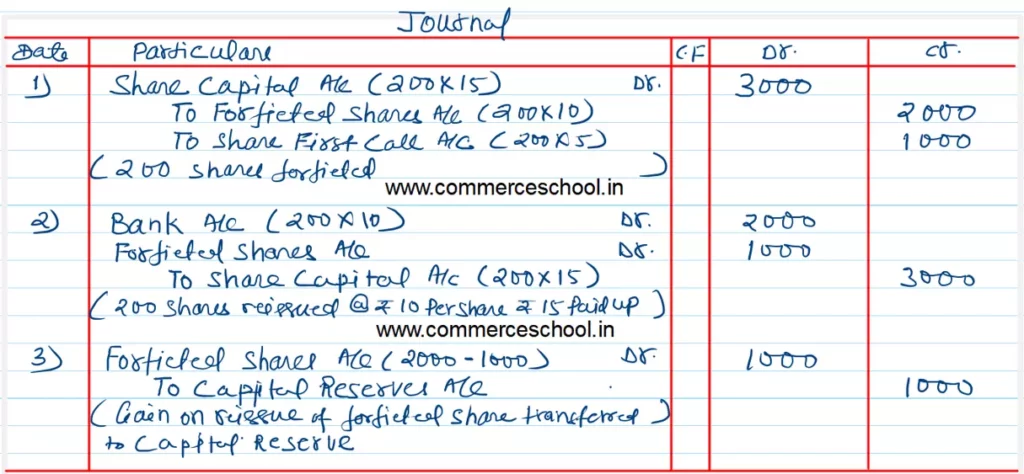 Journal
Date Particulars CF Dr. Cr.
1) Share Capital A/c (200×15) Dr. 3000
To Forfieted Shares A/c (200×10) 2000
To Share First Call A/c (200×5) 1000
(200 Shares forfieted)
www.commerceschool.in
2) Bank A/c (200×10) Dr. 2000
Forfieted Shares A/c Dr. 1000
To Share Capital A/c (200×15) 3000
(200 Shares reissued @ ₹ 10 Per share ₹ 15 Paid up)
www.commerceschool.in
3) Forfieted Shares A/c (2000-1000) Dr. 1000
To Capital Reserves A/c 1000
(Gain on reissue of forfieted share transferred)
to Capital Reserve